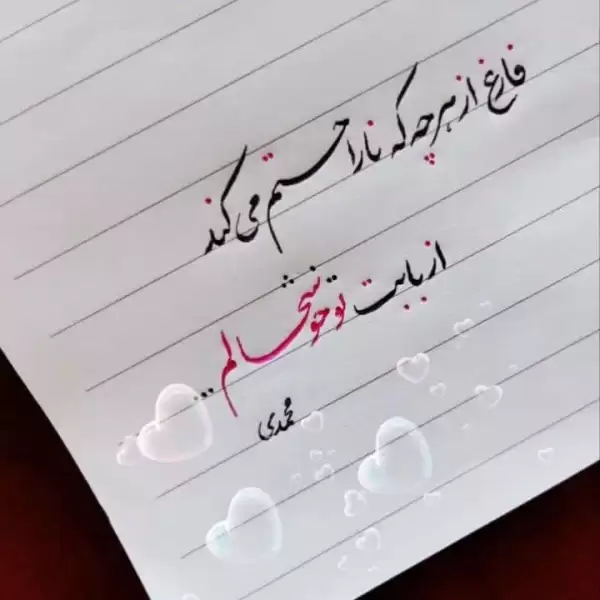 فارغ از هر چه که ناراحتم می کند
از بابت تو خوشحالم...
محمدی